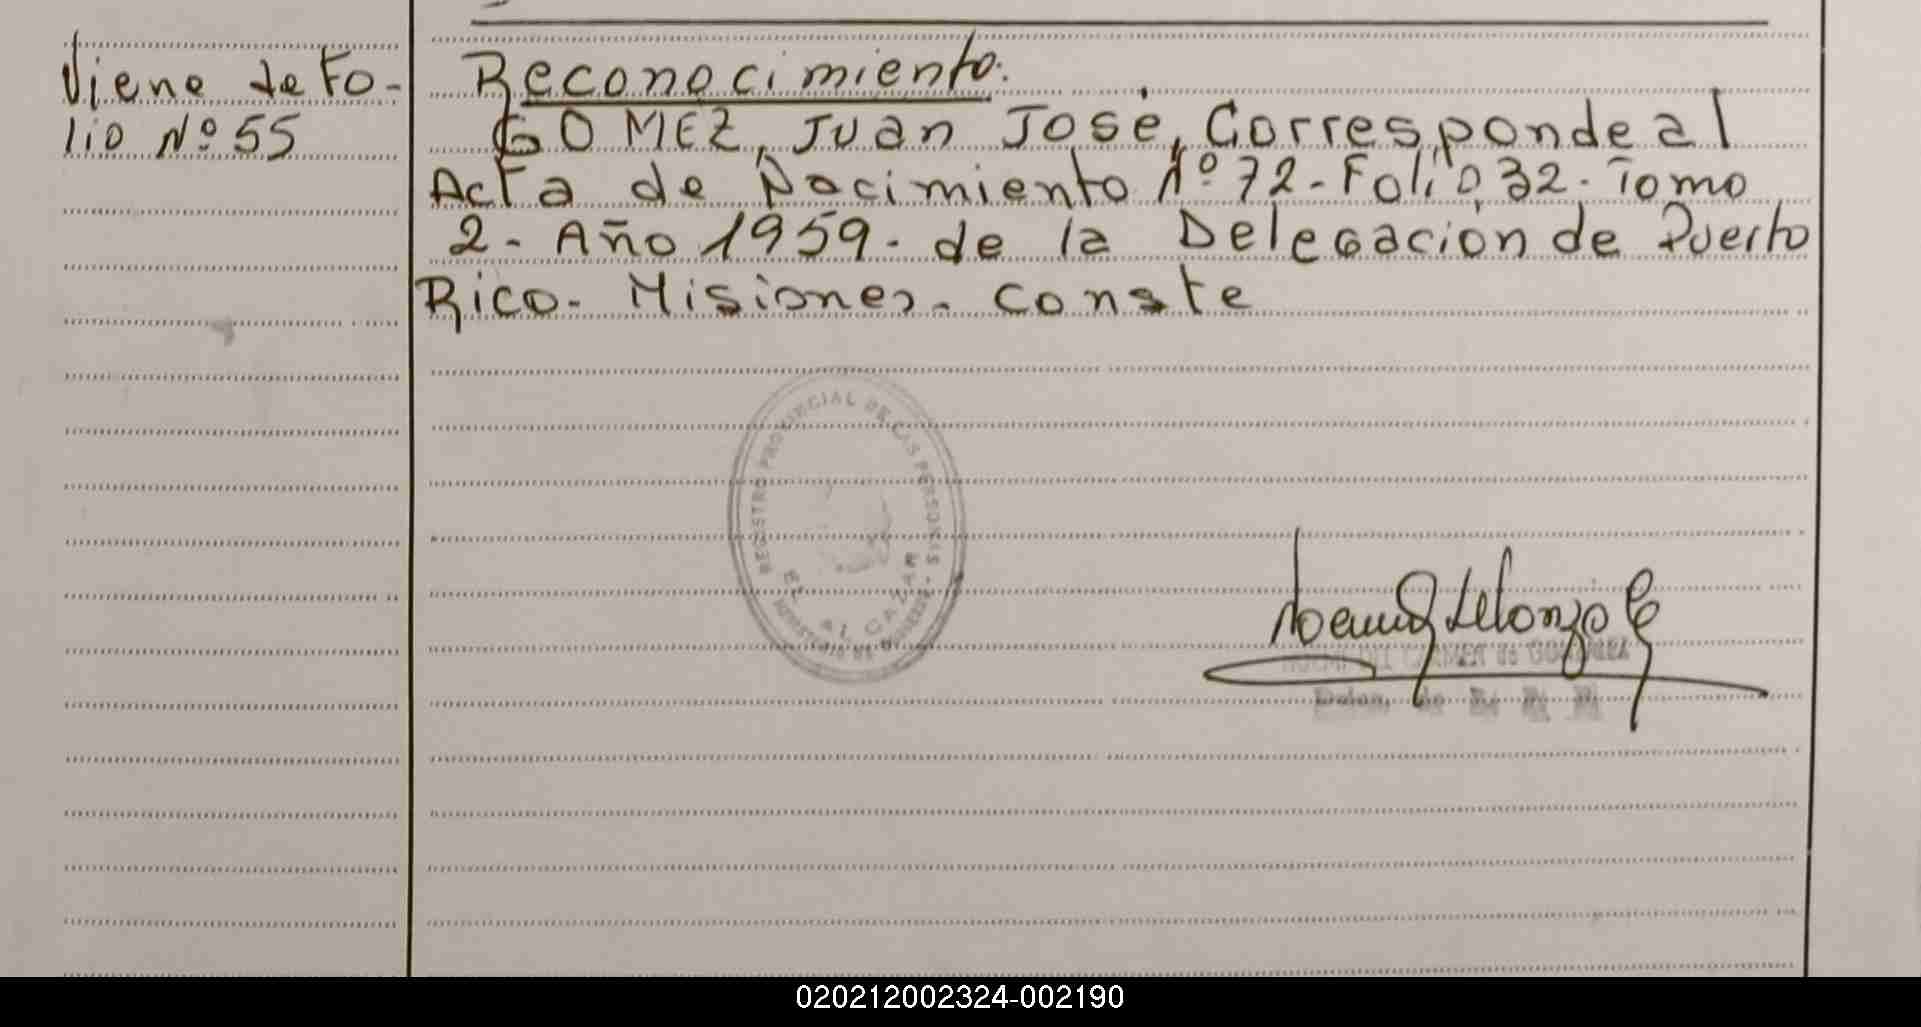 Viene de Fo-
lio Nº 55
Reconocimiento.
GOMEZ, Juan José, Corresponde al
Acta de Nacimiento Nº 72 - Folio 32 - Tomo
2 - Año 1959 - de la Delegación de Puerto
Rico - Misiones - Conste
REGISTRO PROVINCIAL DE LAS PERSONAS
EL ALCAZAR
MINISTERIO DE GOBIERNO
020212002324-002190